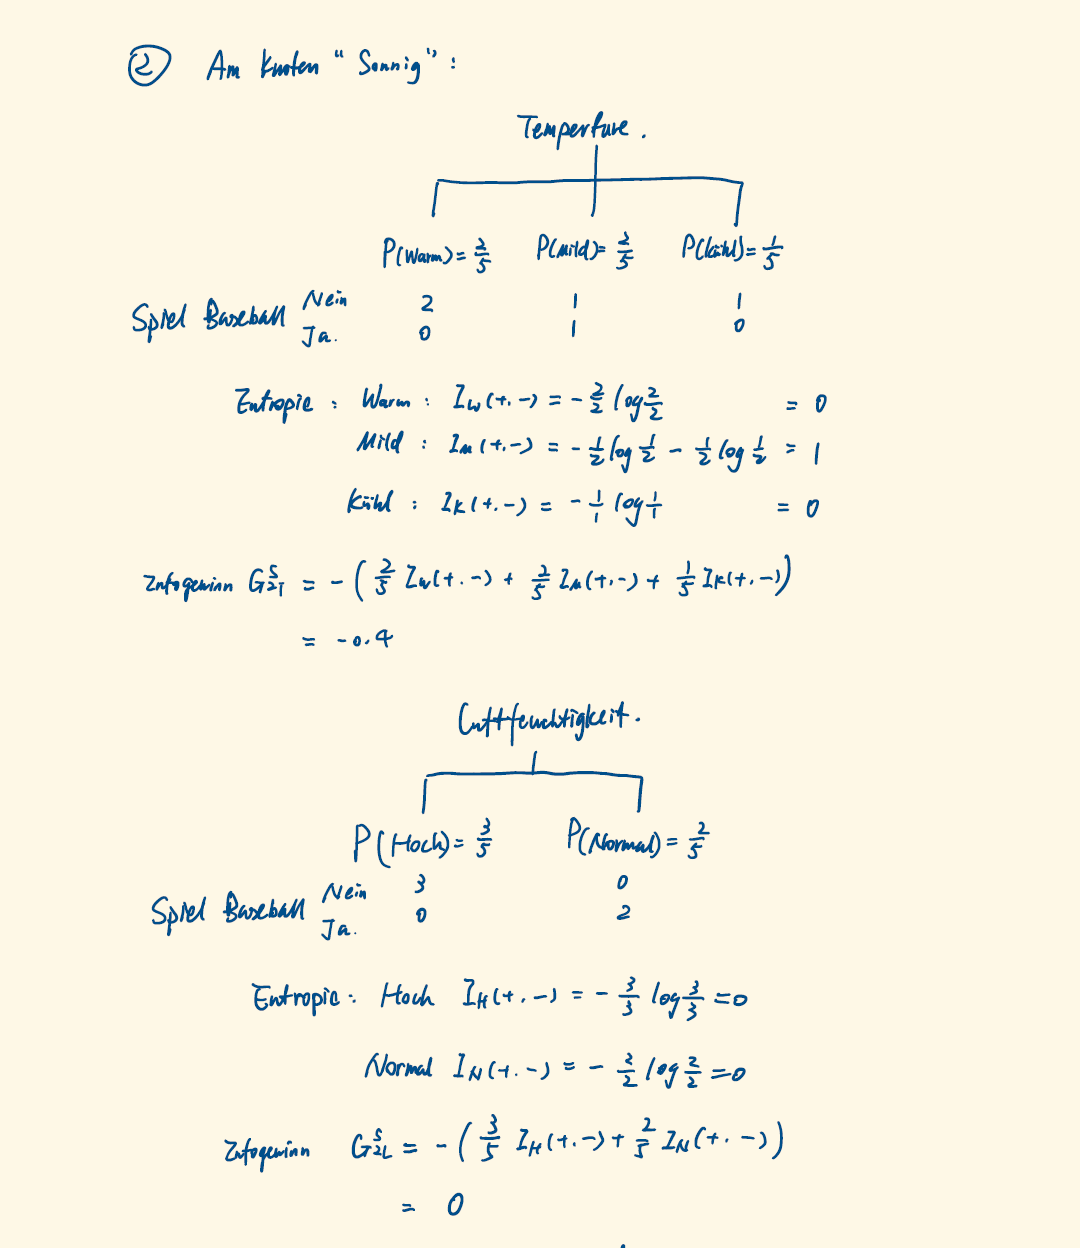 ② Am Knoten "Sonnig":
Temperture.
P(Warm)=2/5 P(Mild)=2/5 P(kühl)=1/5
Spiel Baseball Nein 2 1 1
Ja. 0 1 0
Entropie: Warm: I_W(+.-) = -2/2 log 2/2 = 0
Mild: I_M(+.-) = -1/2 log 1/2 - 1/2 log 1/2 = 1
Kühl: I_K(+.-) = -1/1 log 1/1 = 0
Infogewinn G^S_2T = -(2/5 I_W(+.-) + 2/5 I_M(+.-) + 1/5 I_K(+.-))
= -0.4
Luftfeuchtigkeit.
P(Hoch)=3/5 P(Normal)=2/5
Spiel Baseball Nein 3 0
Ja. 0 2
Entropie: Hoch I_H(+.-) = -3/3 log 3/3 = 0
Normal I_N(+.-) = -2/2 log 2/2 = 0
Infogewinn G^S_2L = -(3/5 I_H(+.-) + 2/5 I_N(+.-))
= 0